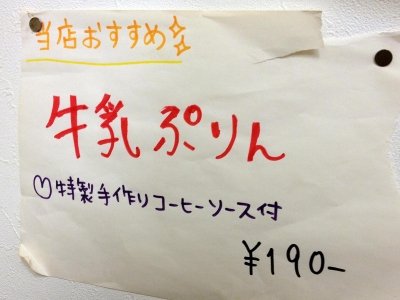 当店おすすめ
牛乳ぷりん
♡特製手作りコーヒーソース付
¥190-